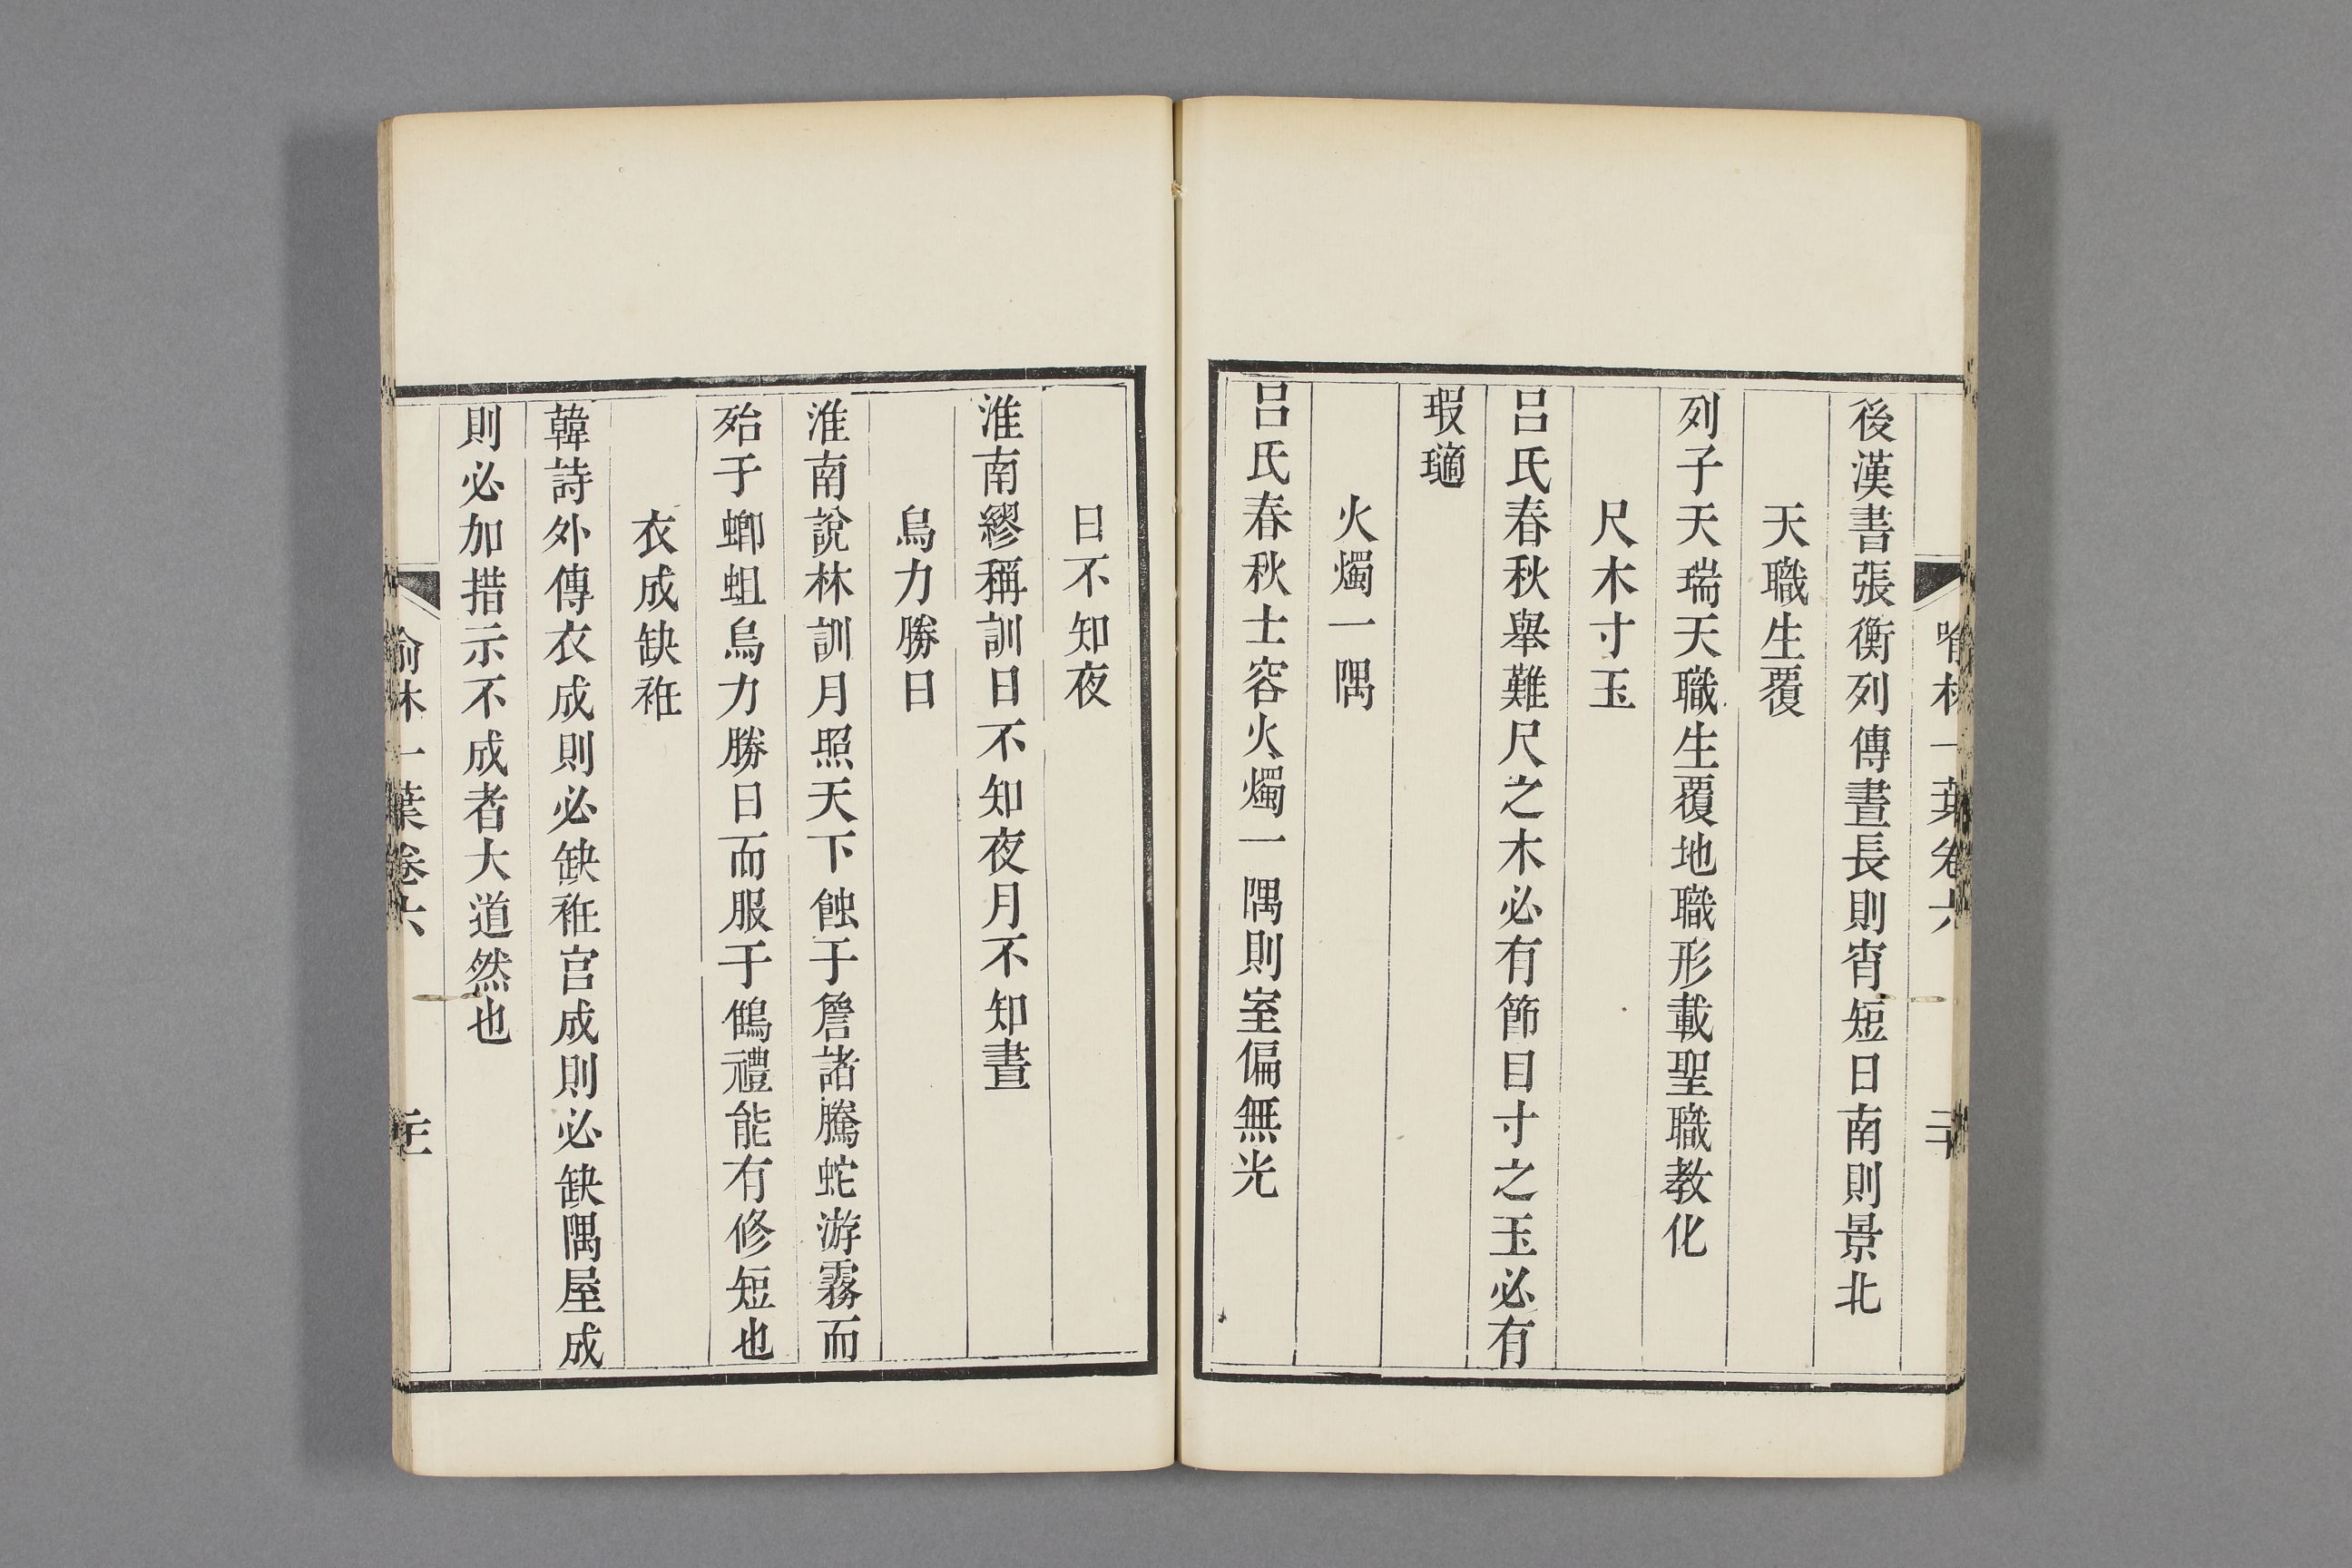 喻林一葉卷六
二十
後漢書張衡列傳晝長則宵短日南則景北
天職生覆
列子天瑞天職生覆地職形載聖職教化
尺木寸玉
呂氏春秋舉難尺之木必有節目寸之玉必有
瑕瓋
火燭一隅
呂氏春秋士容火燭一隅則室偏無光
日不知夜
淮南繆稱訓日不知夜月不知晝
烏力勝日
淮南說林訓月照天下蝕于詹諸騰蛇游霧而
殆于蝍蛆烏力勝日而服于鵻禮能有修短也
衣成缺袵
韓詩外傳衣成則必缺袵宮成則必缺隅屋成
則必加措示不成者大道然也
喻林一葉卷六